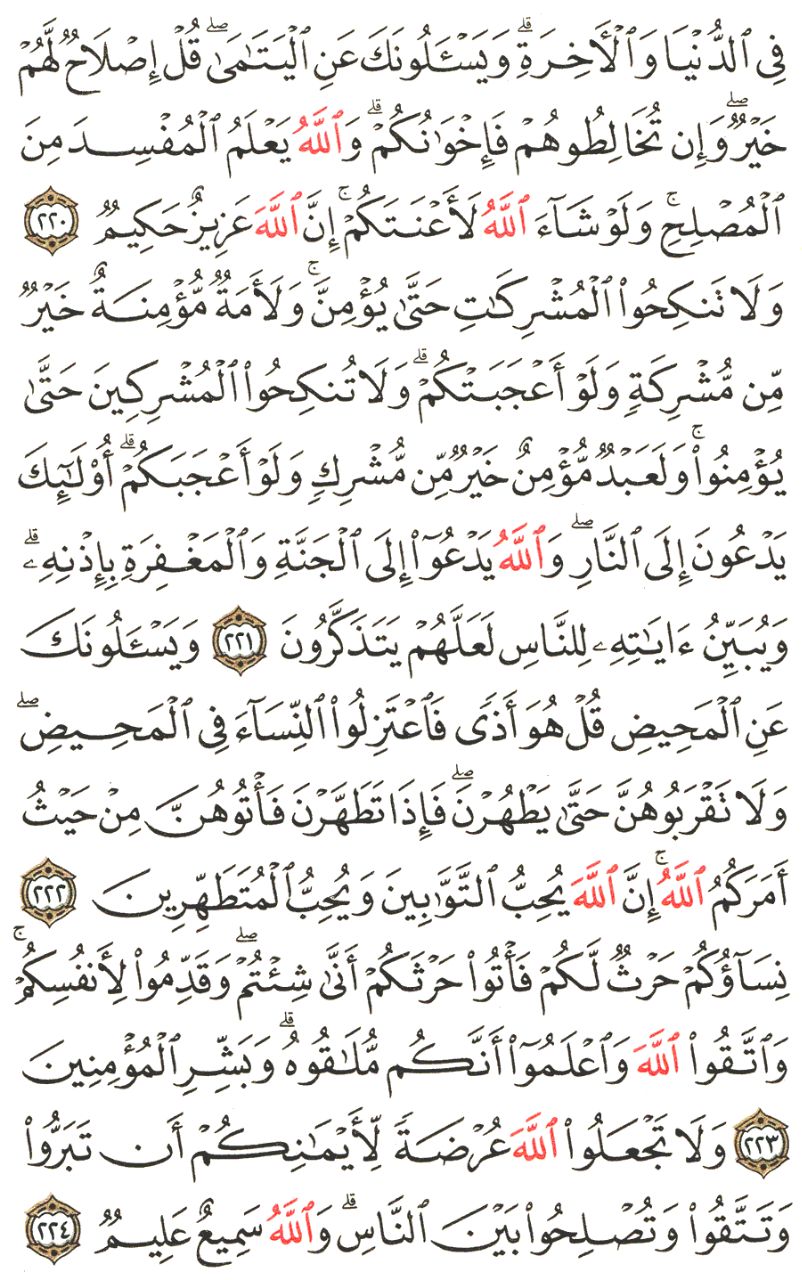 فِي ٱلدُّنۡيَا وَٱلۡأٓخِرَةِۗ وَيَسۡـَٔلُونَكَ عَنِ ٱلۡيَتَٰمَىٰۖ قُلۡ إِصۡلَاحٞ لَّهُمۡ
خَيۡرٞۖ وَإِن تُخَالِطُوهُمۡ فَإِخۡوَٰنُكُمۡۗ وَٱللَّهُ يَعۡلَمُ ٱلۡمُفۡسِدَ مِنَ
ٱلۡمُصۡلِحِۚ وَلَوۡ شَآءَ ٱللَّهُ لَأَعۡنَتَكُمۡۚ إِنَّ ٱللَّهَ عَزِيزٌ حَكِيمٞ ٢٢٠
وَلَا تَنكِحُواْ ٱلۡمُشۡرِكَٰتِ حَتَّىٰ يُؤۡمِنَّۚ وَلَأَمَةٞ مُّؤۡمِنَةٌ خَيۡرٞ
مِّن مُّشۡرِكَةٖ وَلَوۡ أَعۡجَبَتۡكُمۡۗ وَلَا تُنكِحُواْ ٱلۡمُشۡرِكِينَ حَتَّىٰ
يُؤۡمِنُواْۚ وَلَعَبۡدٞ مُّؤۡمِنٌ خَيۡرٞ مِّن مُّشۡرِكٖ وَلَوۡ أَعۡجَبَكُمۡۗ أُوْلَٰٓئِكَ
يَدۡعُونَ إِلَى ٱلنَّارِۖ وَٱللَّهُ يَدۡعُوٓاْ إِلَى ٱلۡجَنَّةِ وَٱلۡمَغۡفِرَةِ بِإِذۡنِهِۦۗ
وَيُبَيِّنُ ءَايَٰتِهِۦ لِلنَّاسِ لَعَلَّهُمۡ يَتَذَكَّرُونَ ٢٢١ وَيَسۡـَٔلُونَكَ
عَنِ ٱلۡمَحِيضِ قُلۡ هُوَ أَذٗى فَٱعۡتَزِلُواْ ٱلنِّسَآءَ فِي ٱلۡمَحِيضِۖ
وَلَا تَقۡرَبُوهُنَّ حَتَّىٰ يَطۡهُرۡنَۖ فَإِذَا تَطَهَّرۡنَ فَأۡتُوهُنَّ مِنۡ حَيۡثُ
أَمَرَكُمُ ٱللَّهُۚ إِنَّ ٱللَّهَ يُحِبُّ ٱلتَّوَّٰبِينَ وَيُحِبُّ ٱلۡمُتَطَهِّرِينَ ٢٢٢
نِسَآؤُكُمۡ حَرۡثٞ لَّكُمۡ فَأۡتُواْ حَرۡثَكُمۡ أَنَّىٰ شِئۡتُمۡۖ وَقَدِّمُواْ لِأَنفُسِكُمۡۚ
وَٱتَّقُواْ ٱللَّهَ وَٱعۡلَمُوٓاْ أَنَّكُم مُّلَٰقُوهُۗ وَبَشِّرِ ٱلۡمُؤۡمِنِينَ
٢٢٣ وَلَا تَجۡعَلُواْ ٱللَّهَ عُرۡضَةٗ لِّأَيۡمَٰنِكُمۡ أَن تَبَرُّواْ
وَتَتَّقُواْ وَتُصۡلِحُواْ بَيۡنَ ٱلنَّاسِۗ وَٱللَّهُ سَمِيعٌ عَلِيمٞ ٢٢٤